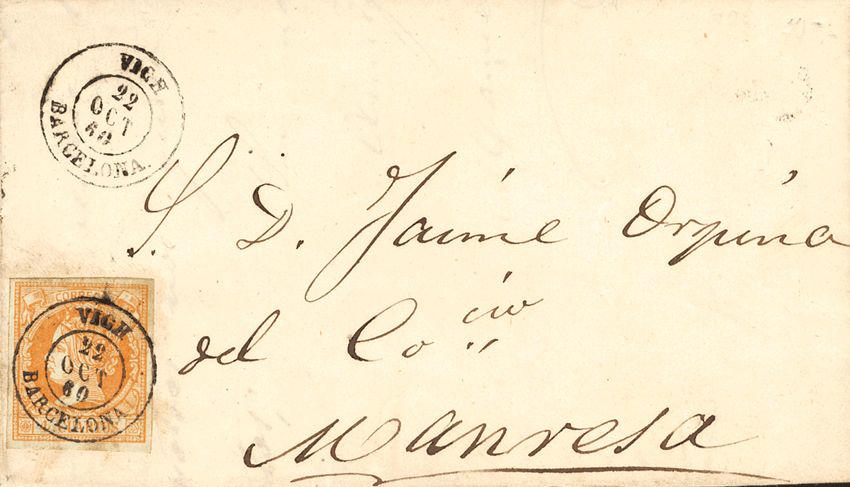 VICH
22
OCT
60
BARCELONA.
S. D. Jaime Orpina
del Co.cio
Manresa
CORREOS
VICH
22
OCT
60
BARCELONA